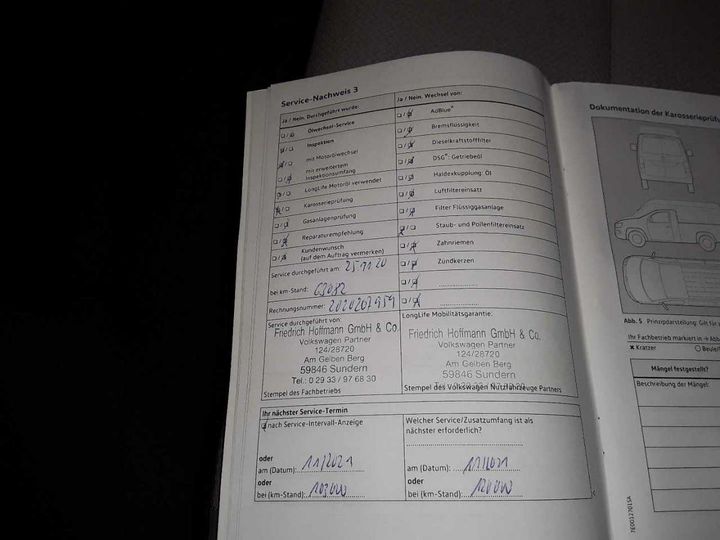 Service-Nachweis 3
Ja / Nein. Durchgeführt wurde:
Ölwechsel-Service
Inspektion
mit Motorölwechsel
mit erweitertem
Inspektionsumfang
LongLife Motoröl verwendet
Karosserieprüfung
Gasanlagenprüfung
Reparaturempfehlung
Kundenwunsch
(auf dem Auftrag vermerken)
Service durchgeführt am: 25.11.20
bei km-Stand:
Rechnungsnummer: 2020207959
Ja / Nein. Wechsel von:
AdBlue®
Bremsflüssigkeit
Dieselkraftstofffilter
DSG®: Getriebeöl
Haldexkupplung: Öl
Luftfiltereinsatz
Filter Flüssiggasanlage
Staub- und Pollenfiltereinsatz
Zahnriemen
Zündkerzen
Service durchgeführt von:
Friedrich Hoffmann GmbH & Co.
Volkswagen Partner
124/28720
Am Gelben Berg
59846 Sundern
Tel.: 0 29 33 / 97 68 30
Stempel des Fachbetriebs
LongLife Mobilitätsgarantie:
Friedrich Hoffmann GmbH & Co.
Volkswagen Partner
124/28720
Am Gelben Berg
59846 Sundern
Stempel des Volkswagen Nutzfahrzeuge Partners
Ihr nächster Service-Termin
nach Service-Intervall-Anzeige
oder
am (Datum): 11/2021
oder
bei (km-Stand): 103000
Welcher Service/Zusatzumfang ist als
nächster erforderlich?
am (Datum): 11/2021
oder
bei (km-Stand): 120000
Dokumentation der Karosserieprüfu
Abb. 5 Prinzipdarstellung: Gilt für
Ihr Fachbetrieb markiert in → Abb
x Kratzer
O Beule/
Mängel festgestellt?
Beschreibung der Mängel:
7E0012701SA